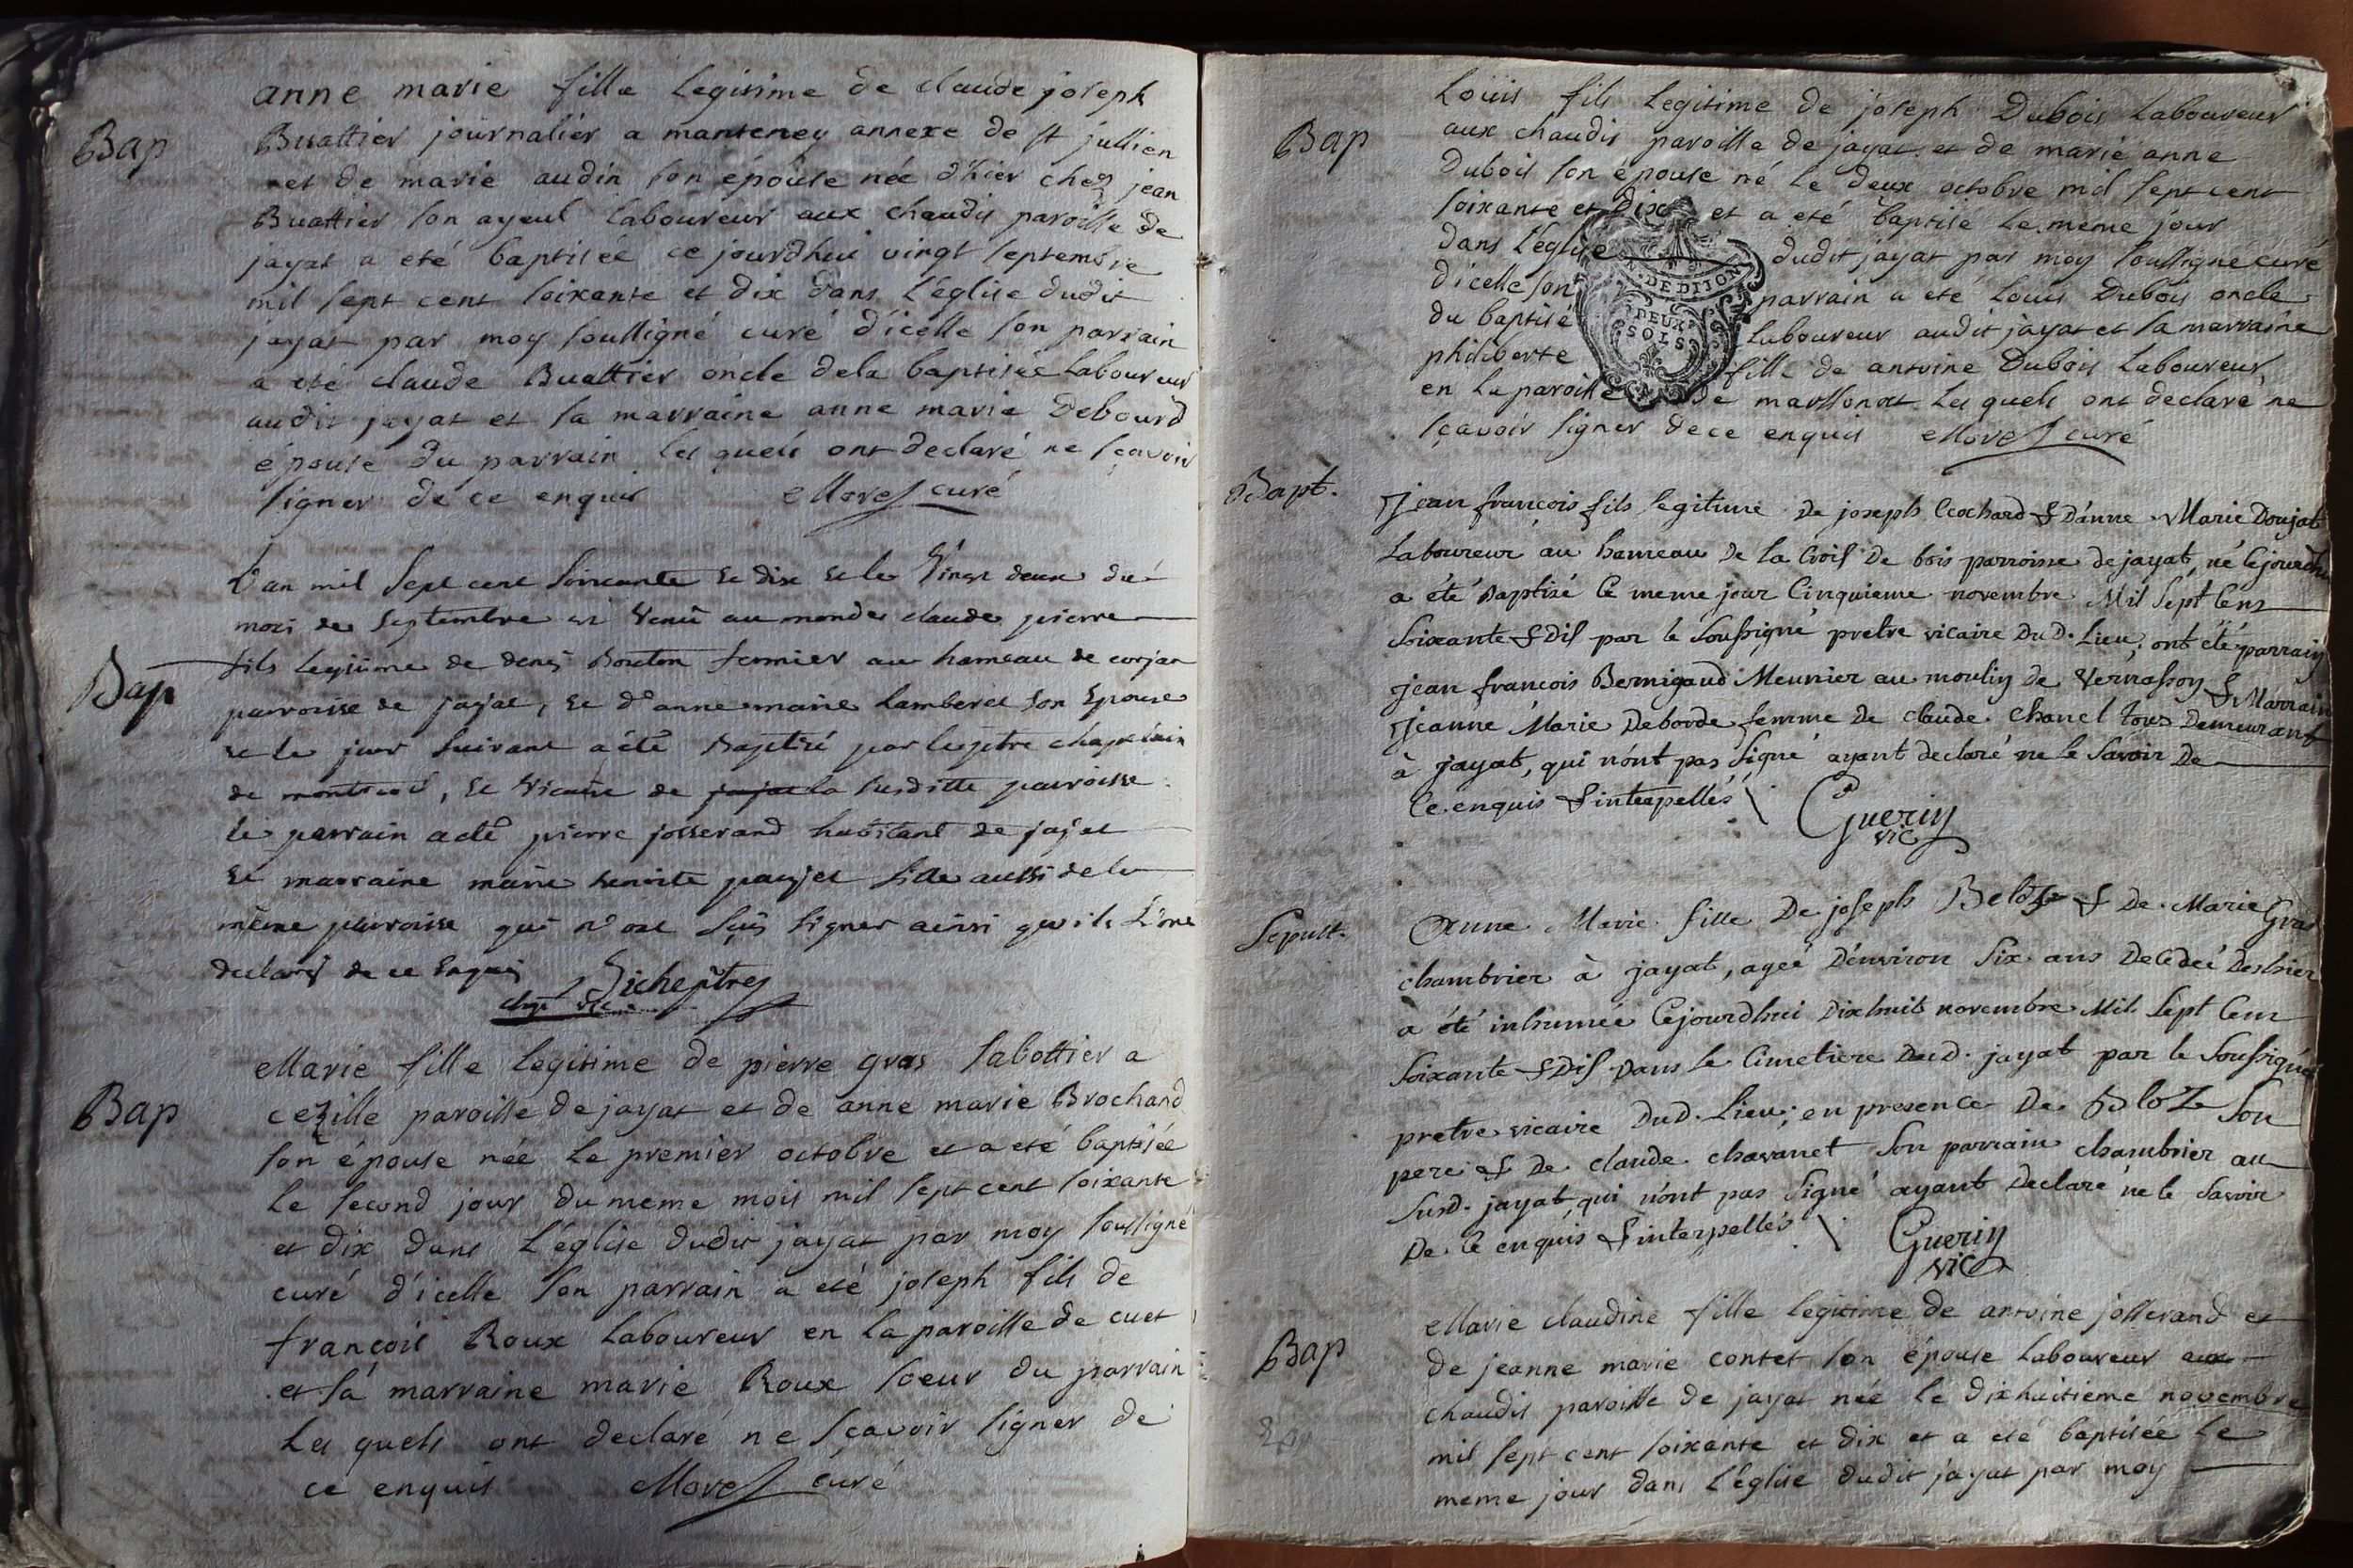 anne marie fille legitime de claude joseph
Bap
Buattier journalier a manteney annexe de st jullien
et de marie audin son épouse née d'hier chez jean
Buattier son ayeul laboureur aux chaudis paroisse de
jayat a eté baptisée ce jourdhui vingt septembre
mil sept cent soixante et dix dans l'église dudit
jayat par moy soussigné curé d'icelle son parrain
a eté claude Buattier oncle dela baptisée laboureur
audit jayat et sa marraine anne marie Debourd
épouse du parrain les quels ont declaré ne sçavoir
signer de ce enquis Morel curé
L'an mil sept cent soixante et dix et le vingt deux du
mois de septembre est venu au monde claude pierre
Bap
fils legitime de denis Bouton fermier au hameau de corjan
parroisse de jayat, et d'anne marie lamberet son epouse
et le jour suivant a été baptisé par le pttre chapelain
de , et vicaire de la susditte parroisse
le parrain a eté pierre josserand habitant de jayat
et marraine marie benoite fille aussi de la
même parroisse qui n'ont sçus signer ainsi qu'ils l'ont
declarés de ce enquis
Marie fille legitime de pierre gras sabottier a
Bap
cezille paroisse de jayat et de anne marie Brochand
son épouse née le premier octobre et a eté baptisée
le second jour du meme mois mil sept cent soixante
et dix dans l'église dudit jayat par moy soussigné
curé d'icelle son parrain a eté joseph fils de
françois Roux laboureur en la paroisse de cuet
et sa marraine marie Roux soeur du parrain
les quels ont declaré ne sçavoir signer de
ce enquis Morel curé
Louis fils legitime de joseph Dubois laboureur
Bap
aux chaudis paroisse de jayat et de marie anne
Dubois son épouse né le deux octobre mil sept cent
soixante et Dix et a eté baptisé le meme jour
dans l'église dudit jayat par moy soussigné curé
d'icelle son parrain a eté Louis Dubois oncle
du baptisé laboureur audit jayat et sa marraine
philiberte fille de antoine Dubois laboureur
en la paroisse de marsonat les quels ont declaré ne
sçavoir signer de ce enquis Morel curé
G. DE DIJON
DEUX
SOLS
Bapt.
Jean françois fils legitime de joseph Cochard & D'anne Marie Doujat
Laboureur au hameau de la Crois De bois parroisse de jayat, né cejourdhui
a été Baptisé le meme jour Cinquieme novembre Mil Sept Cens
Soixante & Dis par le Soussigné pretre vicaire Du D. Lieu; ont été parrain
jean francois Bernigaud Meunier au moulin de Vernasson & Marraine
Jeanne Marie Deborde femme de claude Chanel tous Demeurant
à jayat, qui n'ont pas signé ayant declaré ne le Savoir De
Ce enquis & interpellés
Guerin
vic
Sepult.
Anne Marie fille De joseph Beloz & De Marie Gras
chambrier à jayat, ageé D'environ Six ans Decedeé Des hier
a été inhumée Cejourdhui Dixhuit novembre Mil Sept Cens
Soixante & Dis Dans le Cimetiere Du D. jayat par le Soussigné
pretre vicaire Du D. Lieu; en presence De Beloz Son
pere & De claude chavanet Son parrain chambrier au
Susd. jayat, qui n'ont pas Signé ayant Declaré ne le Savoir
De Ce enquis & interpellés
Guerin
vic
Marie claudine fille legitime de antoine josserand et
Bap
de jeanne marie contet son épouse laboureur aux
chaudis paroisse de jayat née le dixhuitieme novembre
mil sept cent soixante et dix et a eté baptisée le
meme jour dans l'église dudit jayat par moy